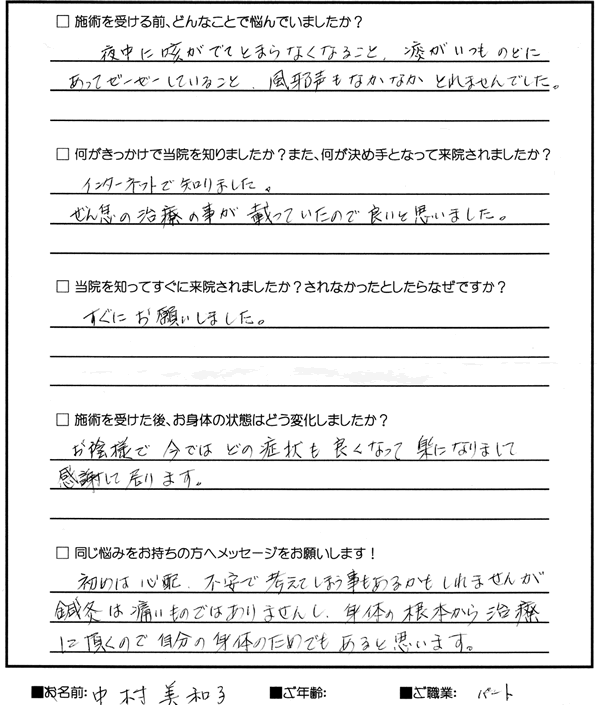 □ 施術を受ける前、どんなことで悩んでいましたか？
夜中に咳がでてとまらなくなること、痰がいつものどに
あってゼーゼーしていること、風邪声もなかなかとれませんでした。
□ 何がきっかけで当院を知りましたか？また、何が決め手となって来院されましたか？
インターネットで知りました。
ぜん息の治療の事が載っていたので良いと思いました。
□ 当院を知ってすぐに来院されましたか？されなかったとしたらなぜですか？
すぐにお願いしました。
□ 施術を受けた後、お身体の状態はどう変化しましたか？
お陰様で今ではどの症状も良くなって楽になりまして
感謝して居ります。
□ 同じ悩みをお持ちの方へメッセージをお願いします！
初めは心配、不安で考えてしまう事もあるかもしれませんが
鍼灸は痛いものではありませんし、身体の根本から治療
に頂くので自分の身体のためでもあると思います。
■お名前: 中村美和子 ■ご年齢: ■ご職業: パート